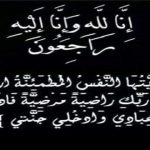 إِنَّا لِلَّهِ وَإِنَّا إِلَيْهِ
رَاجِعُونَ
يَّتُهَا النَّفْسُ الْمُطْمَئِنَّةُ ار
رَبِّكِ رَاضِيَةً مَّرْضِيَّةً فَاد
عِبَادِي وَادْخُلِي جَنَّتِي